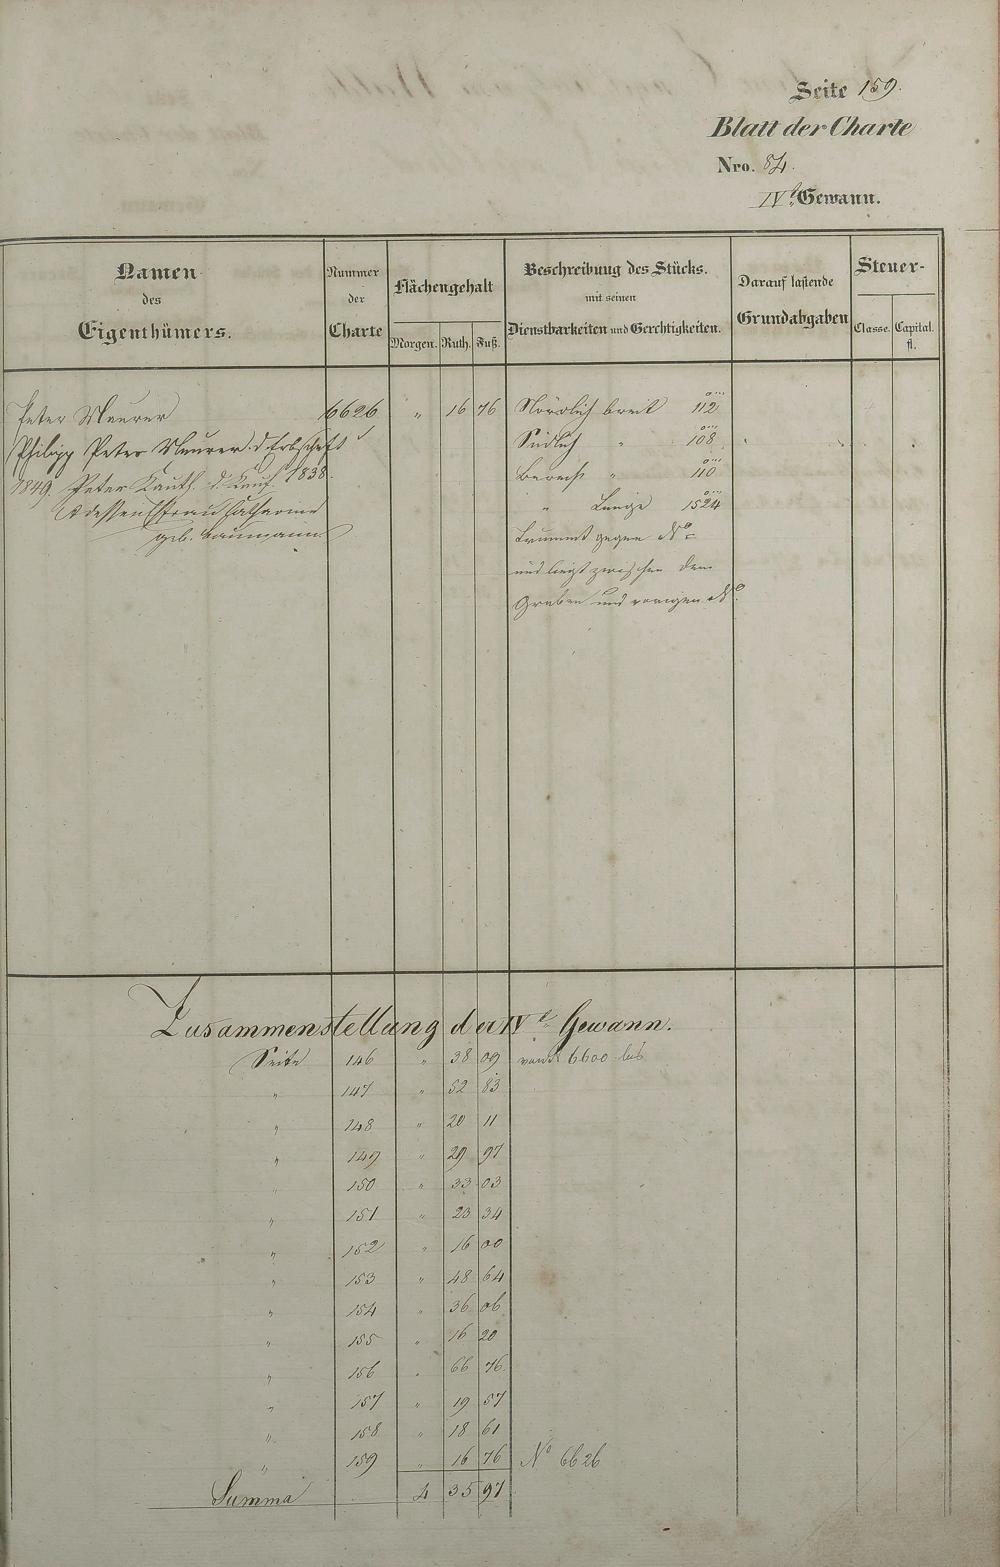 Seite 159.
Blatt der Charte
Nro. 84.
IVte Gewann.
Namen des Eigenthümers.
Nummer der Charte
Flächengehalt
Morgen. Ruth. Fuß.
Beschreibung des Stücks. mit seinen Dienstbarkeiten und Gerechtigkeiten.
Darauf lastende Grundabgaben
Steuer-
Classe. Capital. fl.
Peter Maurer 6626 " 16 76 Nördlich breit 112
Philipp Peter Maurer. d. Erbschaft Südlich " 108
1849. Peter Kauth. d. Kauf. 1838. " 110
& dessen Ehefrau Catharina " Länge 1524
geb. Baumann gegen No
und liegt zwischen dem
Graben und vorigen No.
Zusammenstellung der IVt Gewann.
Seite 146 " 38 09 von 6600 bis
" 147 " 52 83
" 148 " 20 11
" 149 " 29 97
" 150 " 33 03
" 151 " 23 34
" 152 " 16 00
" 153 " 48 64
" 154 " 36 06
" 155 " 16 20
" 156 " 66 76
" 157 " 19 57
" 158 " 18 61
" 159 " 16 76 No 6626
Summa 4 35 97